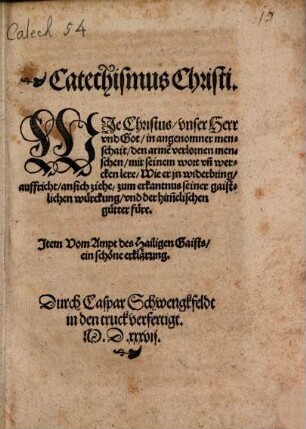 Catech 54
19
Catechismus Christi.
WJe Christus / vnser Herr
vnd Got / in angenomner men-
schait / den armē verlornen men-
schen / mit seinem wort vñ wer-
cken lere / Wie er jn widerbring /
auffricht / an sich ziehe / zum erkantnus seiner gaist-
lichen würckung / vnd der himelischen
gütter füre.
Jtem Vom Ampt des Hailigen Gaists /
ein schöne erklärung.
Durch Caspar Schwengkfeldt
in den truck verfertigt.
M. D. xxxvij.